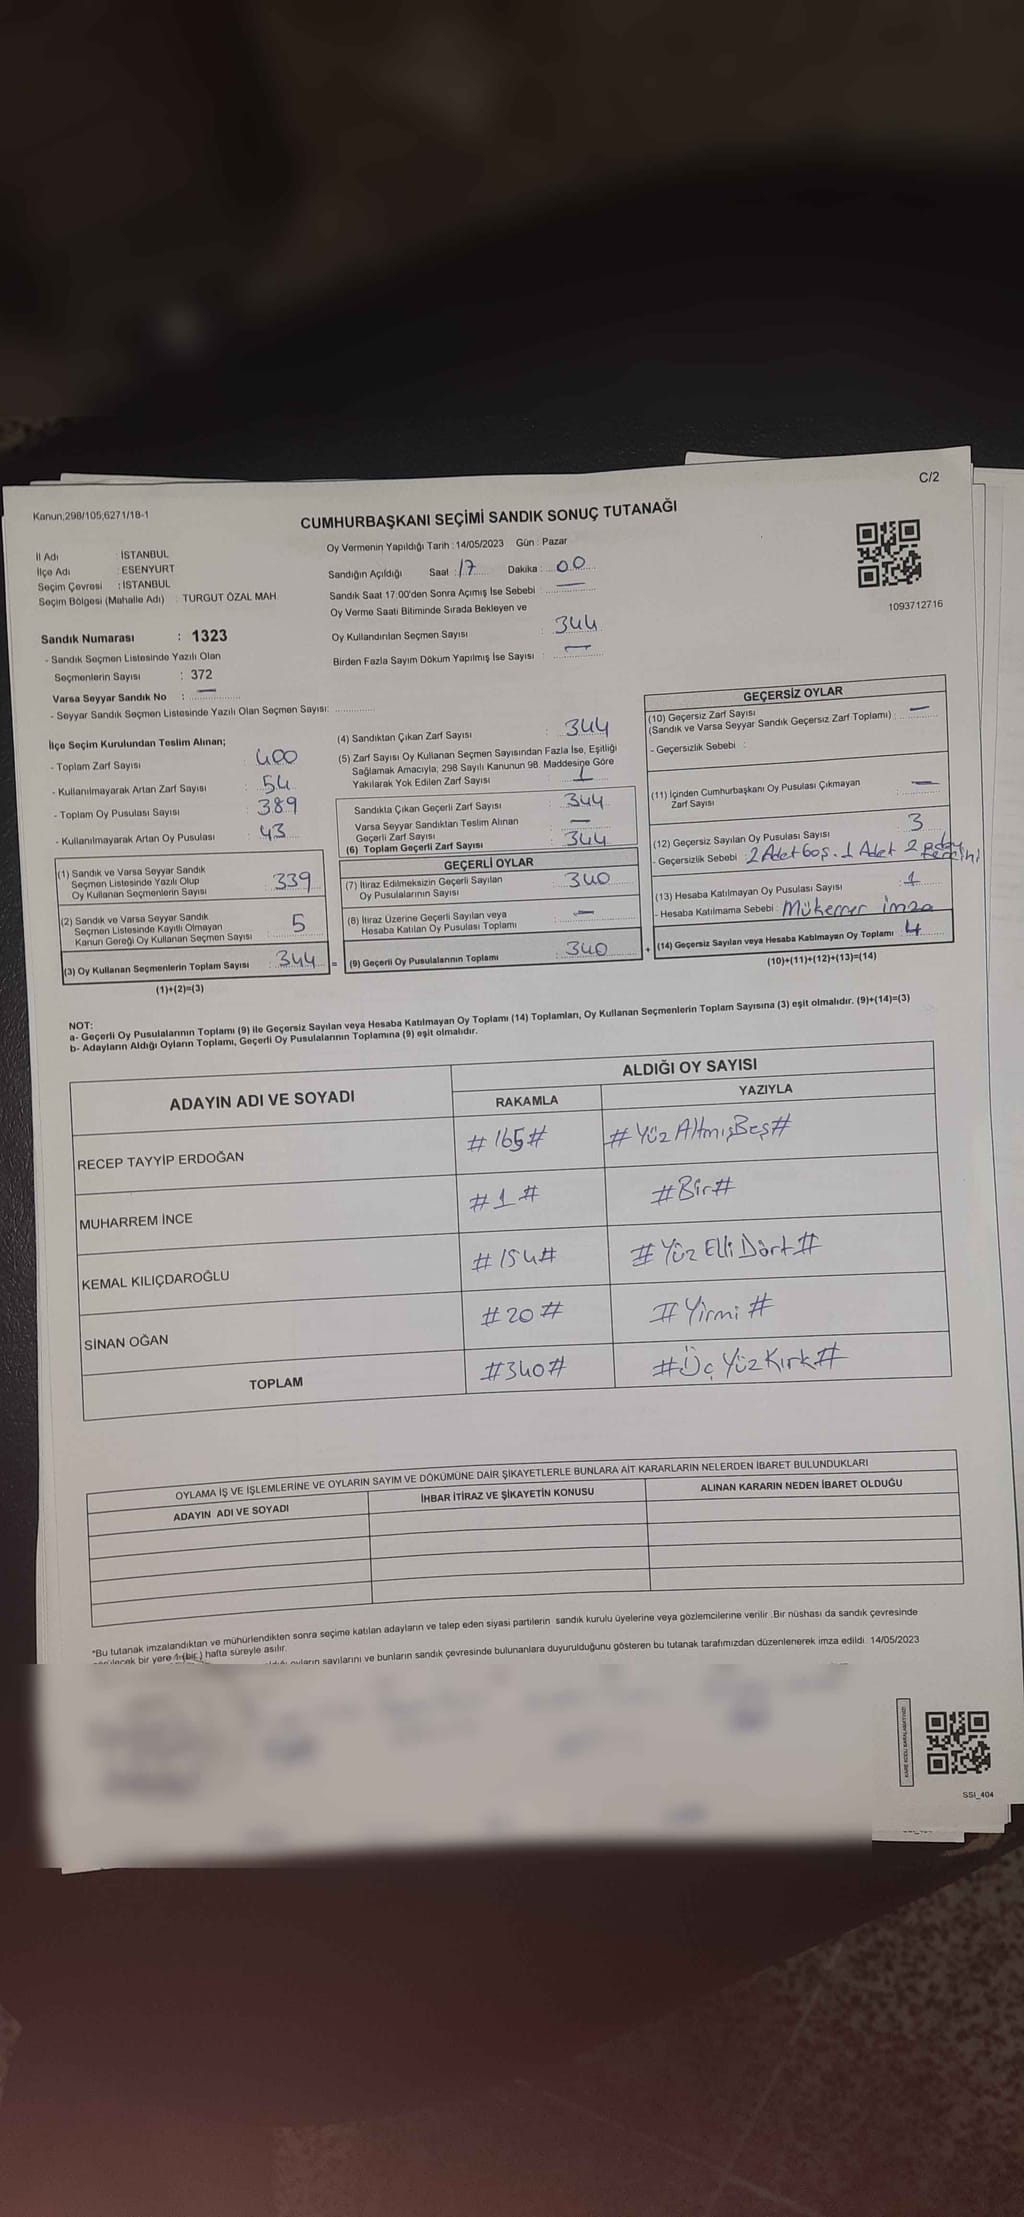 C/2
Kanun;298/105,6271/18-1
CUMHURBAŞKANI SEÇİMİ SANDIK SONUÇ TUTANAĞI
İl Adı : İSTANBUL
İlçe Adı : ESENYURT
Seçim Çevresi : İSTANBUL
Seçim Bölgesi (Mahalle Adı) : TURGUT ÖZAL MAH.
Sandık Numarası : 1323
- Sandık Seçmen Listesinde Yazılı Olan
Seçmenlerin Sayısı : 372
Varsa Seyyar Sandık No : —
- Seyyar Sandık Seçmen Listesinde Yazılı Olan Seçmen Sayısı:
Oy Vermenin Yapıldığı Tarih : 14/05/2023 Gün : Pazar
Sandığın Açıldığı Saat : 17 Dakika : 00
Sandık Saat 17:00'den Sonra Açımış İse Sebebi : —
Oy Verme Saati Bitiminde Sırada Bekleyen ve
Oy Kullandırılan Seçmen Sayısı : 344
Birden Fazla Sayım Döküm Yapılmış İse Sayısı : —
1093712716
İlçe Seçim Kurulundan Teslim Alınan;
- Toplam Zarf Sayısı : 400
- Kullanılmayarak Artan Zarf Sayısı : 54
- Toplam Oy Pusulası Sayısı : 389
- Kullanılmayarak Artan Oy Pusulası : 43
(1) Sandık ve Varsa Seyyar Sandık
Seçmen Listesinde Yazılı Olup
Oy Kullanan Seçmenlerin Sayısı : 339
(2) Sandık ve Varsa Seyyar Sandık
Seçmen Listesinde Kayıtlı Olmayan
Kanun Gereği Oy Kullanan Seçmen Sayısı : 5
(3) Oy Kullanan Seçmenlerin Toplam Sayısı : 344 =
(1)+(2)=(3)
(4) Sandıktan Çıkan Zarf Sayısı : 344
(5) Zarf Sayısı Oy Kullanan Seçmen Sayısından Fazla İse, Eşitliği
Sağlamak Amacıyla; 298 Sayılı Kanunun 98. Maddesine Göre
Yakılarak Yok Edilen Zarf Sayısı : 1
Sandıkta Çıkan Geçerli Zarf Sayısı : 344
Varsa Seyyar Sandıktan Teslim Alınan
Geçerli Zarf Sayısı : —
(6) Toplam Geçerli Zarf Sayısı : 344
GEÇERLİ OYLAR
(7) İtiraz Edilmeksizin Geçerli Sayılan
Oy Pusulalarının Sayısı : 340
(8) İtiraz Üzerine Geçerli Sayılan veya
Hesaba Katılan Oy Pusulası Toplamı : —
(9) Geçerli Oy Pusulalarının Toplamı : 340 +
GEÇERSİZ OYLAR
(10) Geçersiz Zarf Sayısı
(Sandık ve Varsa Seyyar Sandık Geçersiz Zarf Toplamı) : —
- Geçersizlik Sebebi :
(11) İçinden Cumhurbaşkanı Oy Pusulası Çıkmayan
Zarf Sayısı : —
(12) Geçersiz Sayılan Oy Pusulası Sayısı : 3
- Geçersizlik Sebebi : 2 Adet boş. 1 Adet 2 aday
(13) Hesaba Katılmayan Oy Pusulası Sayısı : 1
- Hesaba Katılmama Sebebi : Mükerrer imza
(14) Geçersiz Sayılan veya Hesaba Katılmayan Oy Toplamı : 4
(10)+(11)+(12)+(13)=(14)
NOT:
a- Geçerli Oy Pusulalarının Toplamı (9) ile Geçersiz Sayılan veya Hesaba Katılmayan Oy Toplamı (14) Toplamları, Oy Kullanan Seçmenlerin Toplam Sayısına (3) eşit olmalıdır. (9)+(14)=(3)
b- Adayların Aldığı Oyların Toplamı, Geçerli Oy Pusulalarının Toplamına (9) eşit olmalıdır.
ADAYIN ADI VE SOYADI
ALDIĞI OY SAYISI
RAKAMLA YAZIYLA
RECEP TAYYİP ERDOĞAN #165# #Yüz AltmışBeş#
MUHARREM İNCE #1# #Bir#
KEMAL KILIÇDAROĞLU #154# #Yüz Elli Dört#
SİNAN OĞAN #20# #Yirmi#
TOPLAM #340# #Üç Yüz Kırk#
OYLAMA İŞ VE İŞLEMLERİNE VE OYLARIN SAYIM VE DÖKÜMÜNE DAİR ŞİKAYETLERLE BUNLARA AİT KARARLARIN NELERDEN İBARET BULUNDUKLARI
ADAYIN ADI VE SOYADI İHBAR İTİRAZ VE ŞİKAYETİN KONUSU ALINAN KARARIN NEDEN İBARET OLDUĞU
*Bu tutanak imzalandıktan ve mühürlendikten sonra seçime katılan adayların ve talep eden siyasi partilerin sandık kurulu üyelerine veya gözlemcilerine verilir .Bir nüshası da sandık çevresinde
bir yere 1 (bir) hafta süreyle asılır.
oyların sayılarını ve bunların sandık çevresinde bulunanlara duyurulduğunu gösteren bu tutanak tarafımızdan düzenlenerek imza edildi. 14/05/2023
SSI_404